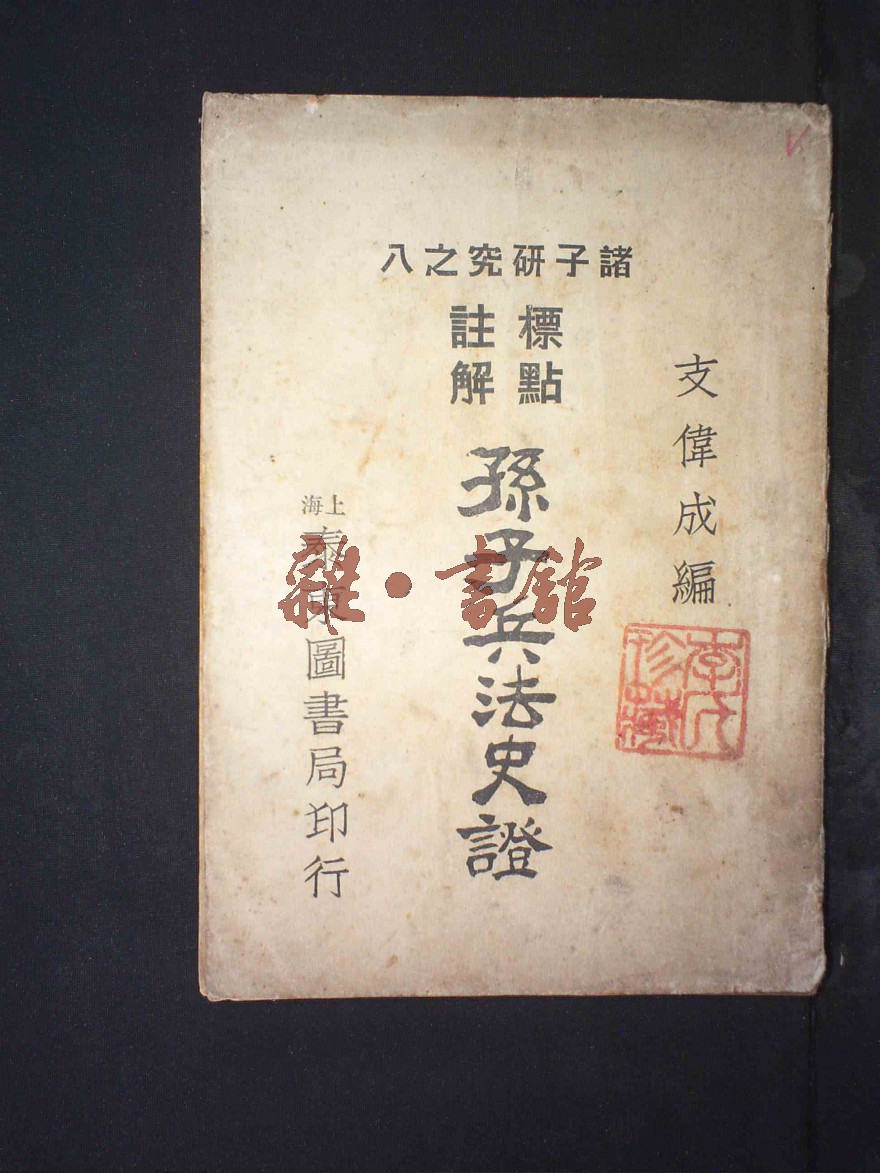 諸子研究之八
標點
註解
孫子兵法史證
支偉成編
上海
泰東圖書局印行
李氏
珍藏
雜·書館